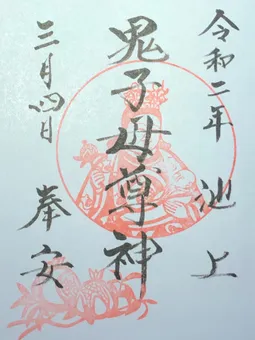 令和二年　池上
鬼子母尊神
三月四日　奉安